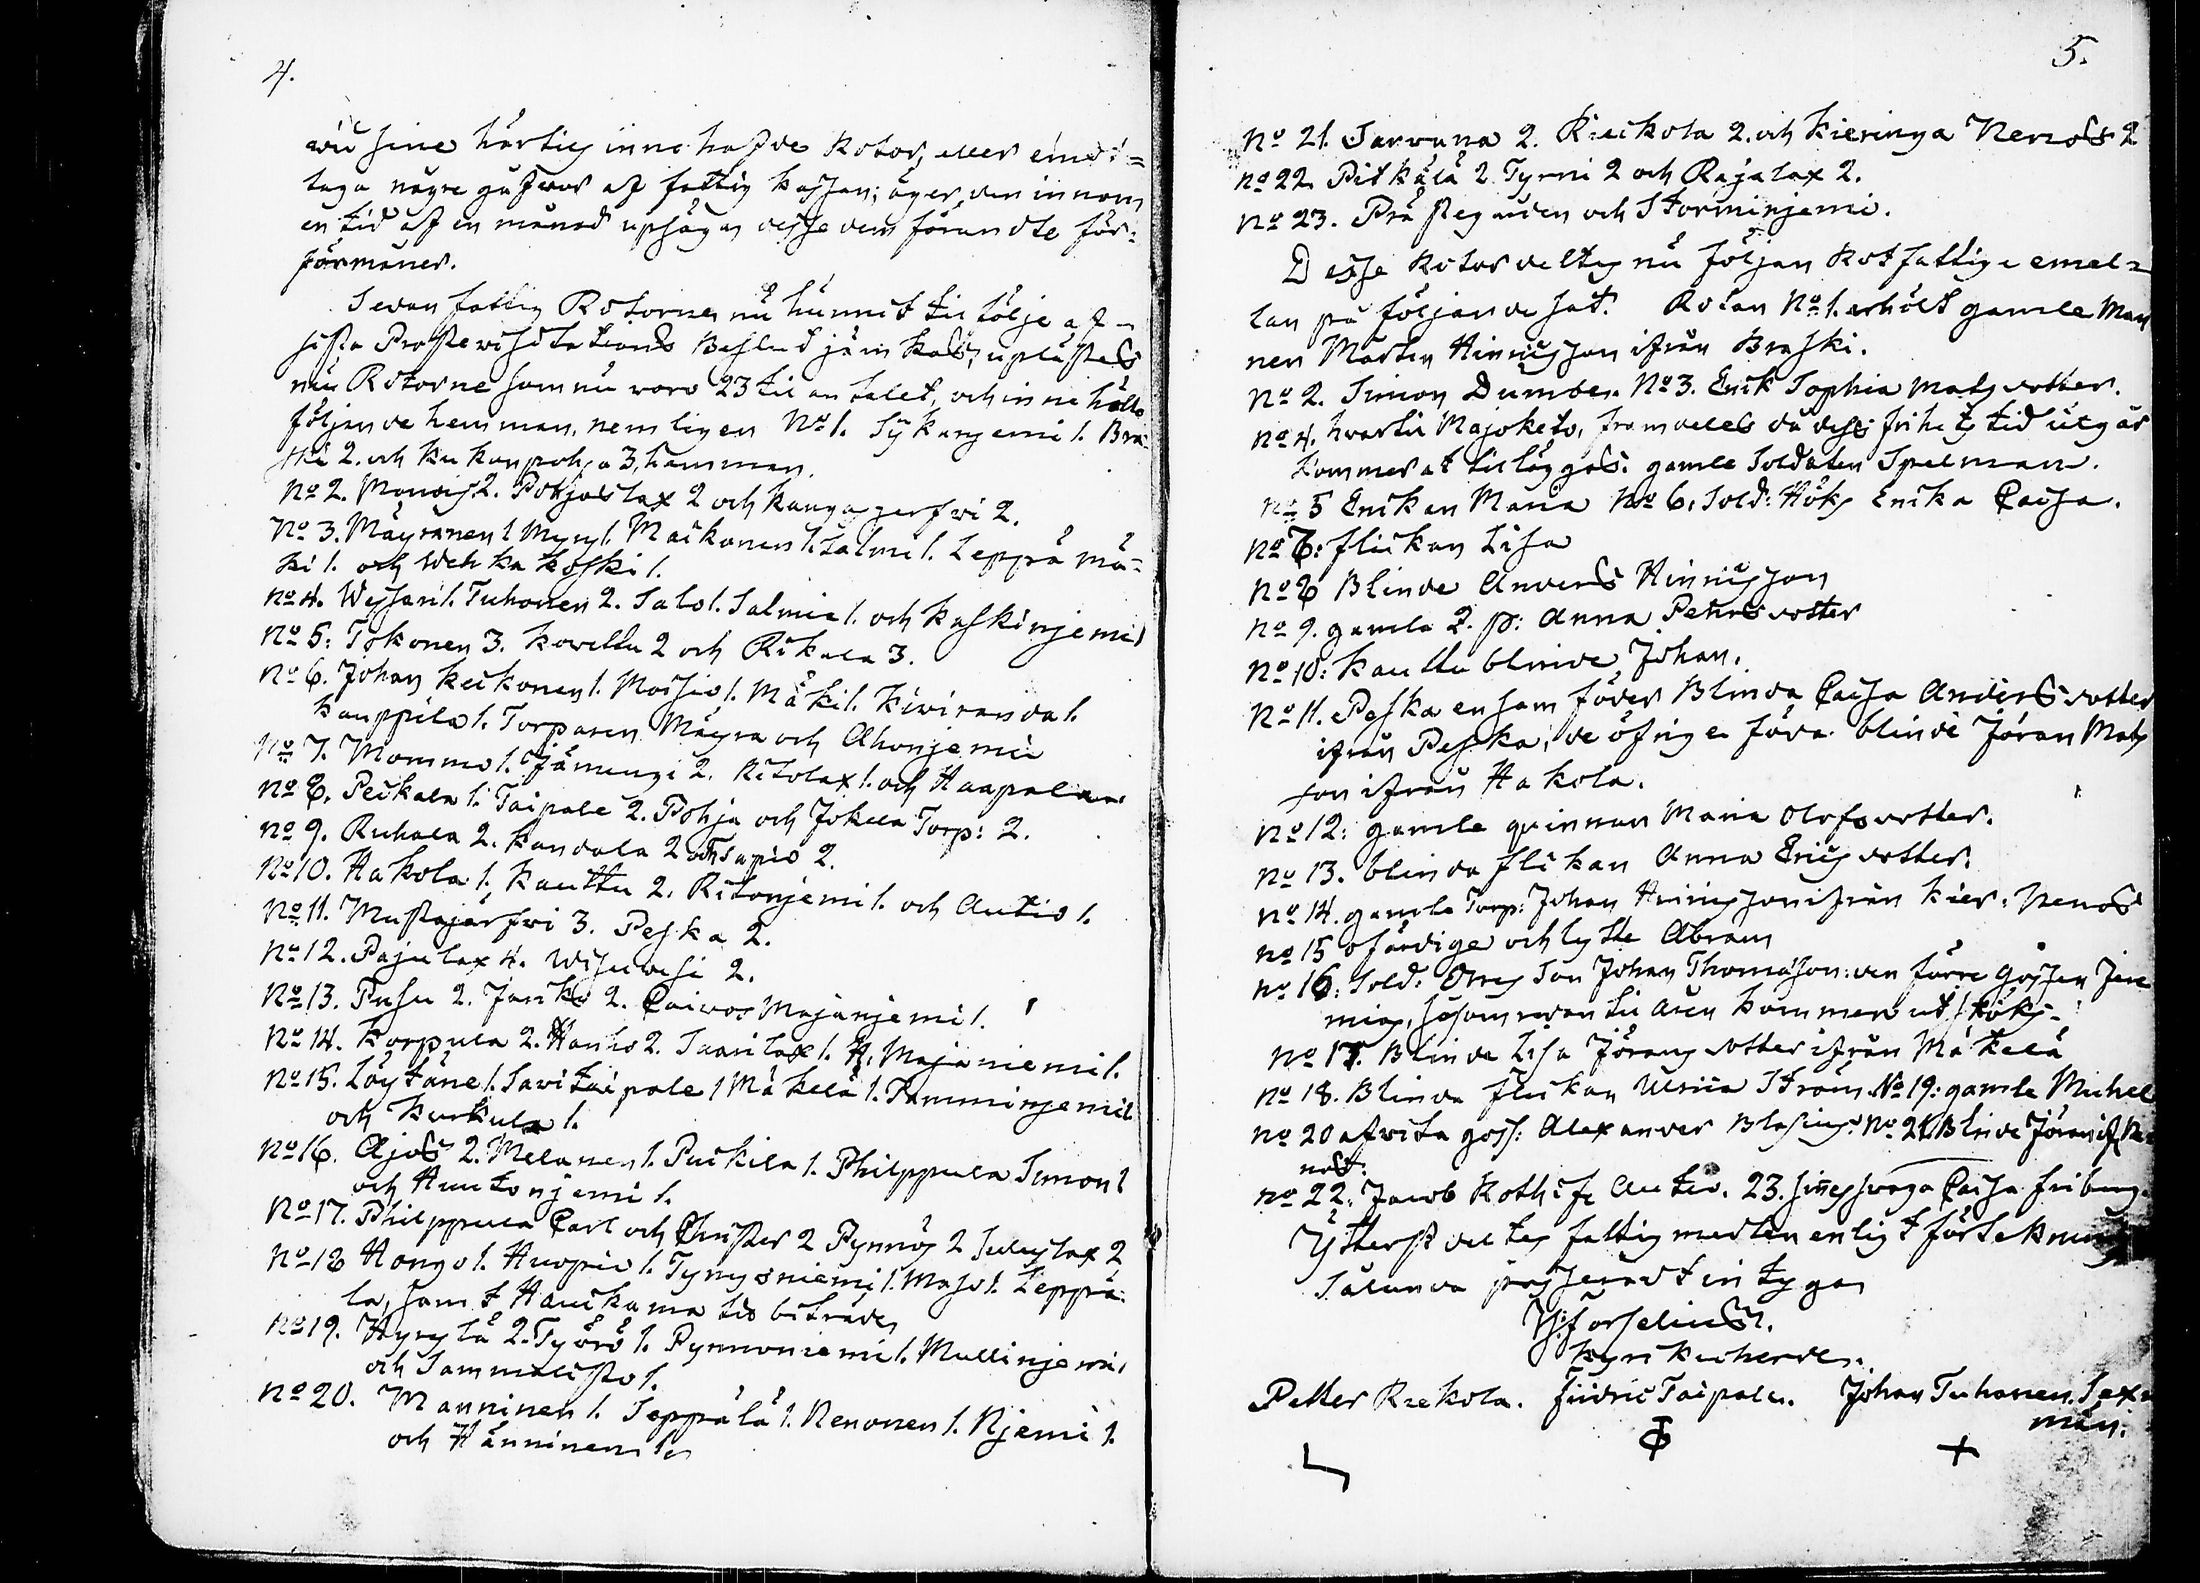 4.
wid sine härtils innehafde Rotor, eller emot=
taga några gåfwor af fattig kassan; äger, den innom
en tid af en månad upsägas desse dem förundte för=
förmåner.
Sedan fattig Rotorne nu hunnit til följe af
sista Prostewisitations Beslut jämkas, uplästes
nu Rotorne som nu woro 23 til antalet, och innehålla
följande hemman, nemligen No 1. Sykärjemi 1. Bra=
ski 2. och Kukonpohja 3, hemman.
No 2. 2. Pohjoslax 2 och Kangasjerfwi 2.
No 3. Mäyränen 1 Myry 1. Maikonen 1. Salmi 1. Leppämä=
ki 1. och Wehkakoski 1.
No 4. Wesseri 1. Tuhonen 2. Salo 1. Salmie 1. och Kaskinjemi 1
No 5: Tokonen 3. Kovelta 2 och Rikala 3.
No 6. Johan Keikonen 1. Moisio 1. Mäki 1. Kiwiranda 1.
Kauppila 1. Torparen Mäyra och Ahonjemi
No 7. Mommo 1. Jämengi 2. Ritolax 1. och Haapala
No 8. Peikala 1. Taipale 2. Pohja och Jokela Torp: 2.
No 9. Ruhala 2. Kandala 2 och Tapio 2.
No 10. Hakola 1. Kauttu 2. Ritonjemi 1. och Autio 1.
No 11. Mustajärfwi 3. Peska 2.
No 12. Pajulax 4. Wisuwesi 2.
No 13. Pusu 2. Jariks 2. Majanjemi 1.
No 14. Korpula 2. Hanho 2. Saarilax 1. H. Majaniemi 1.
No 15. Löytäne 1. Sawitaipale 1 Mäkelä 1. Pamminjemi 1
och Kurkula 1.
No 16. Ajos 2. Melanen 1. Puikila 1. Philppula Simon 1
och Huutonjemi 1.
No 17. Philppula Carl och Christer 2 Pynnös 2 Juluslax 2
No 18 Hongo 1. Huopio 1. Tyrysniemi 1. Maso 1. Leppä=
la, samt Haukama til biträde
No 19. Hyrylä 2. Työrö 1. Pynnoniemi 1. Mullinjemi
och Sammalisto 1.
No 20. Manninen 1. Seppälä 1. Nenonen 1. Njemi 1.
och Hänninen 1
5.
No 21. Sarvana 2. Kieikola 2. och Kieringa Nenos 2
No 22. Pitkälä 2. Tyrni 2 och Rajalax 2.
No 23. Prästegården och Storminjemi.
Desse Rotor deltes nu följan Rotfattige emel=
lan på följande sät. Rotan No 1. erhölt gamle Man
nen Mårten Hinricsson ifrån Braski.
No 2. Simon Dumbe. No 3. Enk Sophia Matsdotter.
No 4. hwartil Majoketo, framdeles då dess frihets tid utgår
kommer at tilläggas. gamle Soldaten Spelman.
No 5 Enkan Maria No 6, Sold: Höks Enka Caisa.
No 7: flickan Lisa
No 8 Blinde Anders Hinricsson
No 9. gamla 2. p: Anna Petersdotter
No 10: Kauttu blinde Johan.
No 11. Peska ensam föder Blinda Caisa Andersdotter
ifrån Peska, de öfrige föda blinde Jöran Mats
son ifrån Hakola.
No 12: gamle qvinnan Maria Olofsdotter.
No 13. blinda flickan Anna Ericsdotter.
No 14. gamle Torp: Johan Hinricsson ifrån Kier: Nenos
No 15 ofärdige och lytte Abram
No 16: Sold: Orres Son Johan Thomasson: den förre Gossen Jere
mias, såsom redan til åren kommen utsköts.
No 17. Blinde Lisa Jöransdotter ifrån Mäkelä
No 18. Blinda flickan Ulrica Ström. No 19: gamle Michel
No 20 afwita goss: Alexander Blasius. No 21 Blinde Jöran if Ne
nos.
No 22. Jacob Roth if Autio. 23. sinessvaga Caisa Friberg.
Ytterst deltes fattig medlen enligt förtekning
Sålunda passeradt intygar
Forselius.
Kyrkioherde.
Petter Rekola. Fridric Taipale. Johan Tuhanen. Sex=
män.